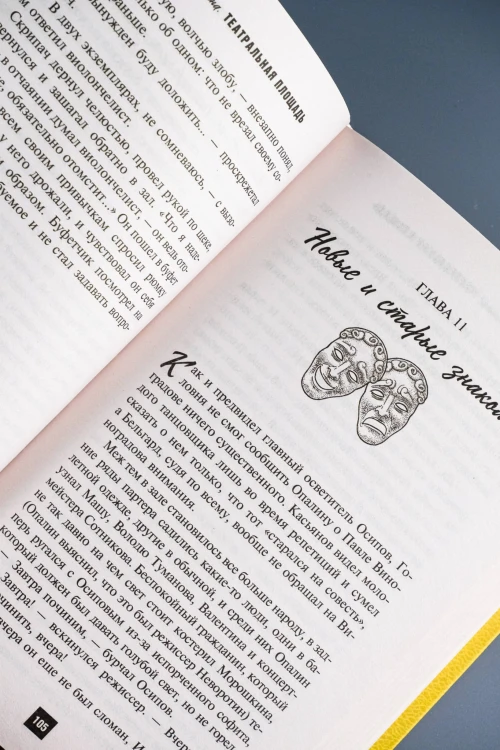 ТЕАТРАЛЬНАЯ ПЛОЩАДЬ
ую, волчью злобу, — внезапно понял,
только об одном: что не врезал своему со-
раньше.
вынужден буду доложить... — проскрежетал
В двух экземплярах, не сомневаюсь, — с выхо-
м ответил виолончелист.
Скрипач дернул челюстью, провел рукой по щеке,
вернулся и зашагал обратно в зал. «Что я наде-
в отчаянии думал виолончелист, — он ведь ото-
е, обязательно отомстит...» Он пошел в буфет
всем своим привычкам спросил рюмку
у него дрожали, и чувствовал он себя
образом. Буфетчик посмотрел на
буемое и не стал задавать вопро-
ГЛАВА 11
Новые и старые знаком
Как и предвидел главный осветитель Осипов, Го-
ловня не смог сообщить Опалину о Павле Вино-
градове ничего существенного. Касьянов видел моло-
дого танцовщика лишь во время репетиций и сумел
сказать о нем только, что тот «старался на совесть»,
а Бельгард, судя по всему, вообще не обращал на Ви-
ноградова внимания.
Меж тем в зале становилось все больше народу, в зад-
ние ряды партера садились какие-то люди, одни в ба-
летной одежде, другие в обычной, и среди них Опалин
узнал Машу, Володю Туманова, Валентина и концерт-
мейстера Сотникова. Беспокойный гражданин, который
не так давно на чем свет стоит костерил Морошкина,
(Опалин выяснил, что это был режиссер Неворотин) те-
перь ругался с Осиповым из-за испорченного софита,
который должен был давать голубой свет, но не горел.
— Завтра починим, — бурчал Осипов.
— Завтра! — вскинулся режиссер. — Вчера
чинить, вчера!
вчера он еще не был сломан, И
105